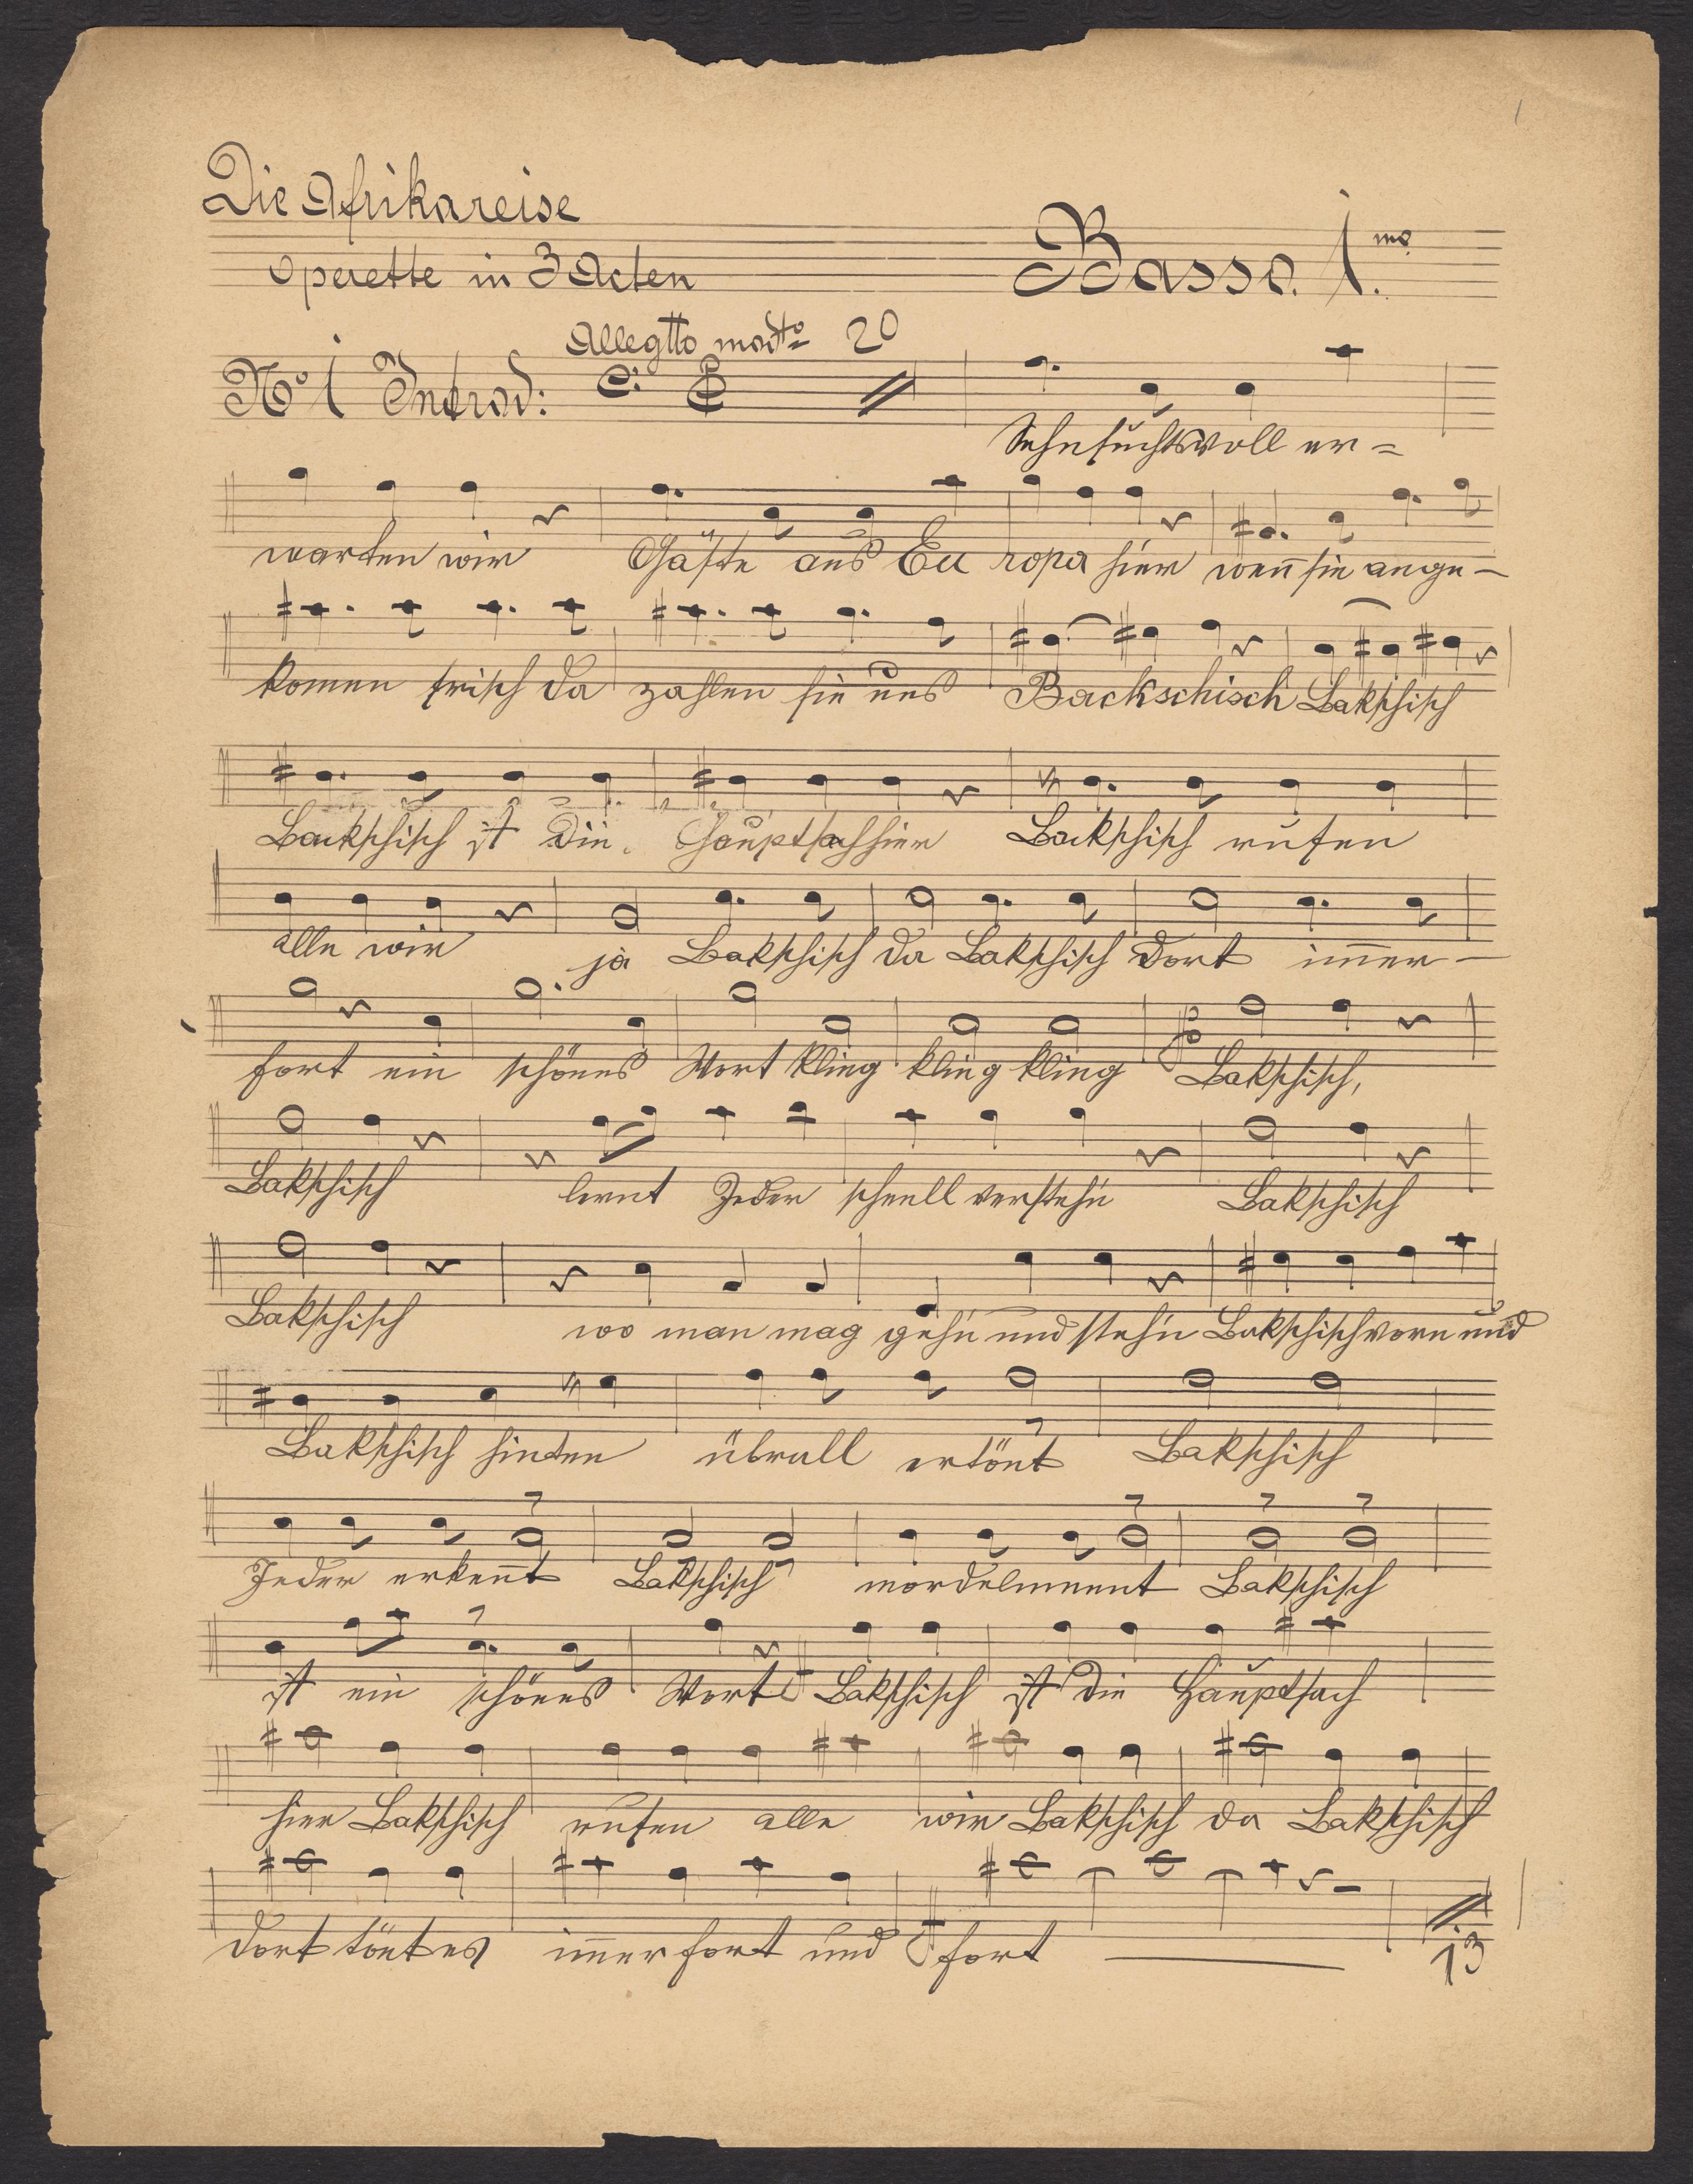 1
Die Afrikareise
Operette in 3 Acten
Basso 1.mo
Allegtto modto 20
No 1 Introd:
Sehnsuchtsvoll er=
warten wir Gäste aus Europa hier wen̄ sie ange-
kom̄en frisch da zahlen sie uns Backschisch Bakschisch
Backschisch ist die Hauptsach hier Backschisch rufen
alle wir ja Bakschisch da Bakschisch dort im̄er-
fort ein schönes Wort kling kling kling Bakschisch,
Bakschisch lernt Jeder schnell versteh'n Bakschisch
Bakschisch wo man mag geh'n und steh'n Bakschisch vorn und
Bakschisch hinten übrall ertönt Bakschisch
Jeder erken̄t Bakschisch Bakschisch
ist ein schönes Wort Bakschisch ist die Hauptsach
hier Bakschisch rufen alle wir Bakschisch da Bakschisch
dort tönt es im̄erfort und fort
13